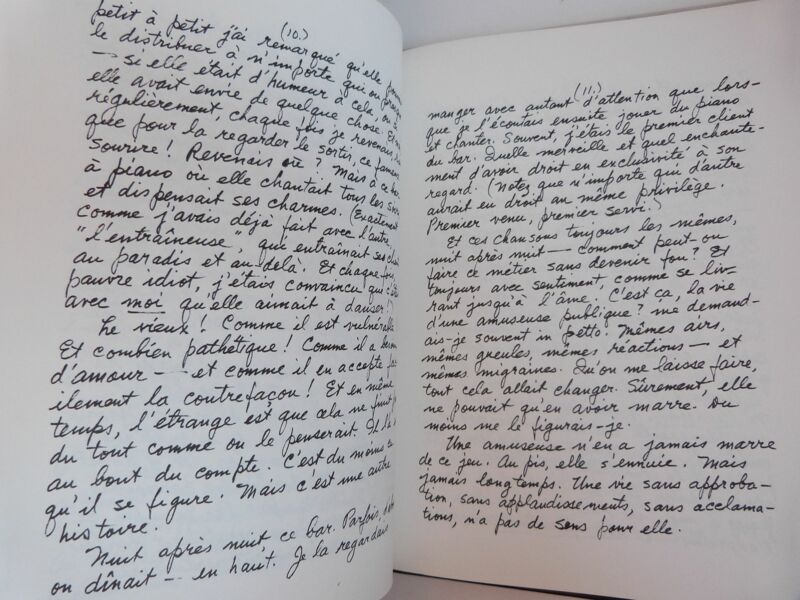 (10.)
petit à petit j'ai remarqué qu'elle
le distribuer à n'importe qui ou
— si elle était d'humeur à cela, ou
elle avait envie de quelque chose. Et
régulièrement, chaque fois je revenais
que pour la regarder le sortir, ce fameux
sourire! Revenais où? Mais à ce bar
à piano où elle chantait tous les soirs
et dispensait ses charmes. (Exactement
comme j'avais déjà fait avec l'autre,
"l'entraîneuse", qui entraînait ses
au paradis et au-delà. Et chaque fois,
pauvre idiot, j'étais convaincu que c'était
avec moi qu'elle aimait à danser!)
Le vieux! Comme il est vulnérable
Et combien pathétique! Comme il a besoin
d'amour — et comme il en accepte fac-
ilement la contrefaçon! Et en même
temps, l'étrange est que cela ne finit pas
du tout comme on le penserait. Il
au bout du compte. C'est du moins ce
qu'il se figure. Mais c'est une autre
histoire.
Nuit après nuit, ce bar. Parfois
on dînait — en haut. Je la regardais
(11.)
manger avec autant d'attention que lors-
que je l'écoutais ensuite jouer du piano
et chanter. Souvent, j'étais le premier client
du bar. Quelle merveille et quel enchante-
ment d'avoir droit en exclusivité à son
regard. (Notez que n'importe qui d'autre
aurait eu droit au même privilège.
Premier venu, premier servi.)
Et ces chansons toujours les mêmes,
nuit après nuit — comment peut-on
faire ce métier sans devenir fou? Et
toujours avec sentiment, comme se liv-
rant jusqu'à l'âme. C'est ça, la vie
d'une amuseuse publique? me demand-
ais-je souvent in petto. Mêmes airs,
mêmes gueules, mêmes réactions — et
mêmes migraines. Qu'on me laisse faire,
tout cela allait changer. Sûrement, elle
ne pouvait qu'en avoir marre. Du
moins me le figurais-je.
Une amuseuse n'en a jamais marre
de ce jeu. Au pis, elle s'ennuie. Mais
jamais longtemps. Une vie sans approba-
tion, sans applaudissements, sans acclama-
tions, n'a pas de sens pour elle.